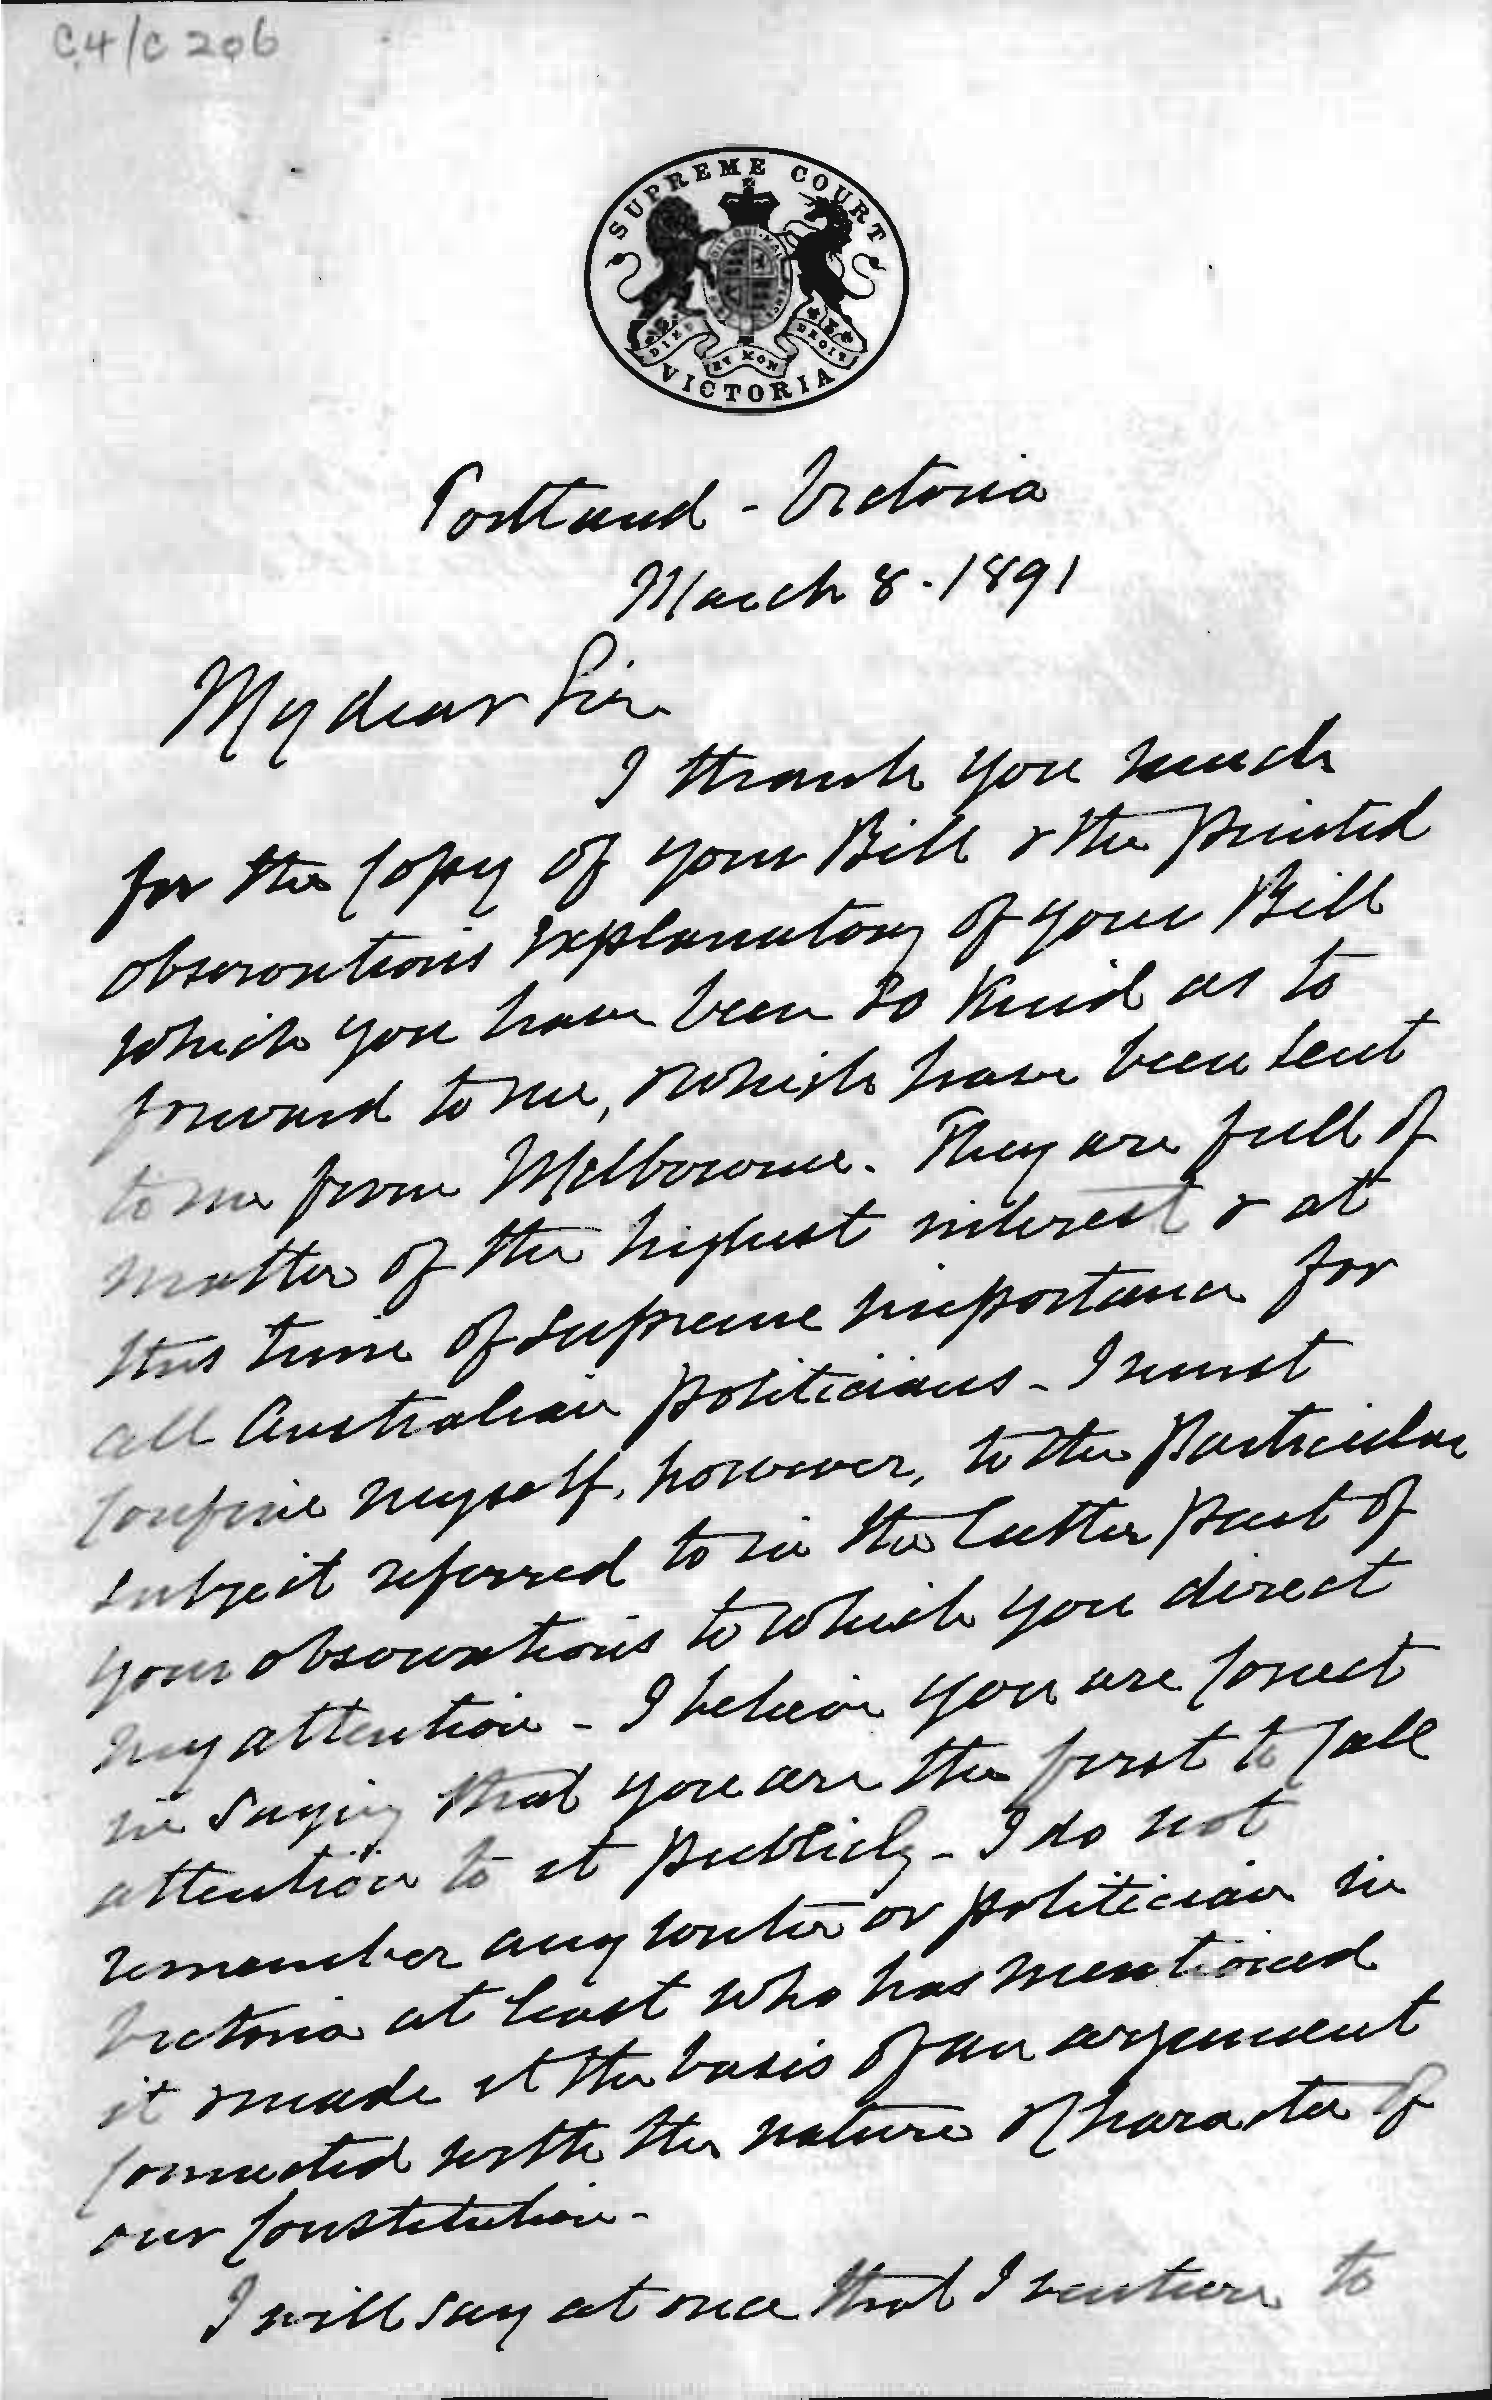 C4/C206
SUPREME COURT
DIEU ET MON DROIT
VICTORIA
Portland - Victoria
March 8. 1891
My dear Sir
I thank you much
for the copy of your Bill & the printed
observations explanatory of your Bill
which you have been so kind as to
forward to me, & which have been sent
to me from Melbourne. They are full of
matter of the highest interest & at
this time of supreme importance for
all Australian politicians - I must
confine myself, however, to the particular
subject referred to in the latter part of
your observations to which you direct
my attention - I believe you are correct
in saying that you are the first to call
attention to it publicly - I do not
remember any writer or politician in
Victoria at least who has mentioned
it & made it the basis of an argument
connected with the nature & character of
our constitution -
I will say at once that I venture to